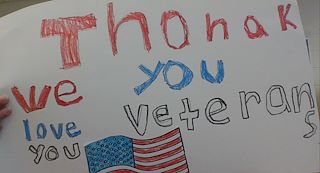 Thonak
you
veterans
we
love
you